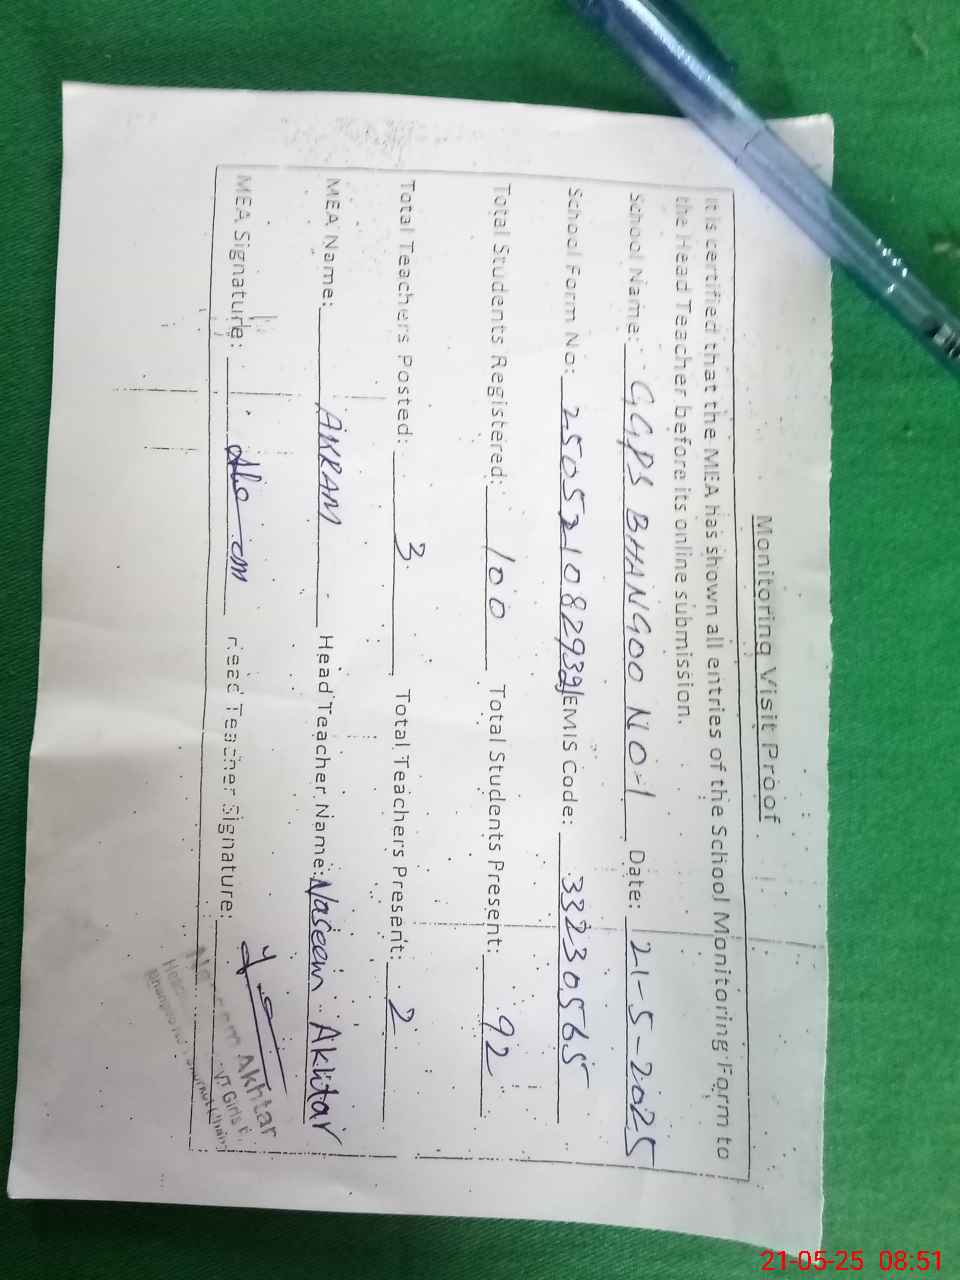 Monitoring Visit Proof
It is certified that the MEA has shown all entries of the School Monitoring Form to
the Head Teacher before its online submission.
School Name: GGPS BHANGOO NO-1 Date: 21-5-2025
School Form No: EMIS Code: 33230565
Total Students Registered: 100 Total Students Present: 92
Total Teachers Posted: 3 Total Teachers Present: 2
MEA Name: AKRAM Head Teacher Name: Naseem Akhtar
MEA Signature: Head Teacher Signature:
Akhtar
Girls
21-05-25 08:51